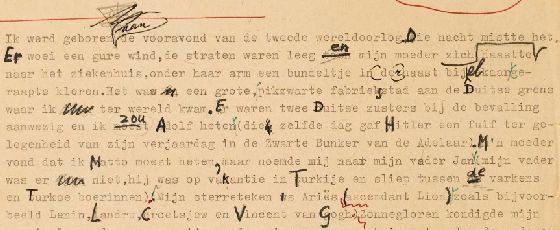 Jaan
Ik werd geboren de vooravond van de tweede wereldoorlog, die nacht mistte het,
Er woei een gure wind, de straten waren leeg en mijn moeder zich haastte
naar het ziekenhuis, onder haar arm een bundeltje in der haast bij elkaar ge-
raapte kleren. Het was in een grote, pikzwarte fabriekstad aan de Duitse grens
waar ik ter wereld kwam. Er waren twee Duitse zusters bij de bevalling
aanwezig en ik zou Adolf heten (die zelfde dag gaf Hitler een fuif ter ge-
legenheid van zijn verjaardag in de Zwarte Bunker van de Adelaar). M'n moeder
vond dat ik Matto moest heten, maar noemde mij naar mijn vader Jan, mijn vader
was er niet, hij was op vakantie in Turkije en sliep tussen de varkens
en Turkse boerinnen. Mijn sterreteken is Ariës, ascendant Lion, zoals bijvoor-
beeld Lenin, Landru, Croetsjew en Vincent van Gogh. Zonnegloren kondigde mijn